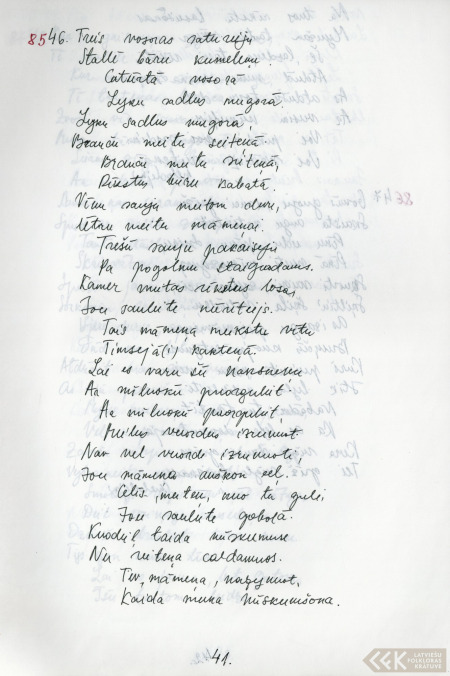 8546. Treis vosoras saturieju
Stallī bāru kumeleņu.
Catūrtā vosorā
Lyku sadlus mugorā.
Lyku sadlus mugorā,
Braucu meitu seitenā.
Braucu meitu
kabatā.
Vīnu sauju meitom devu,
Ūtru meitu māmeņai.
Trešū sauju pakaiseju
Pa pogolmu staigodams.
Kamer meitas rīkstus losa,
Jou sauleite nūritejs.
Tais māmeņa meikstu vītu
Timsejā(i) kakteņā.
Lai es varu šū naksneņu
Ar mīluokū puorgulit.
Ar mīluokū puorgulit,
Meilus vuordus izrunuot.
Nav vel vuordi izrunuoti,
Jou māmeņa auškon ceļ.
Celīs, meiteņ, nu tā guli,
Jou sauleite gobolā.
Kuodeiļ taida nūskumuse
Nu reiteņa caldamuos.
Tev, māmeņa, nazynuot,
Kaida muna nūskumšona.
41.
LATVIEŠU
FOLKLORAS
KRĀTUVE